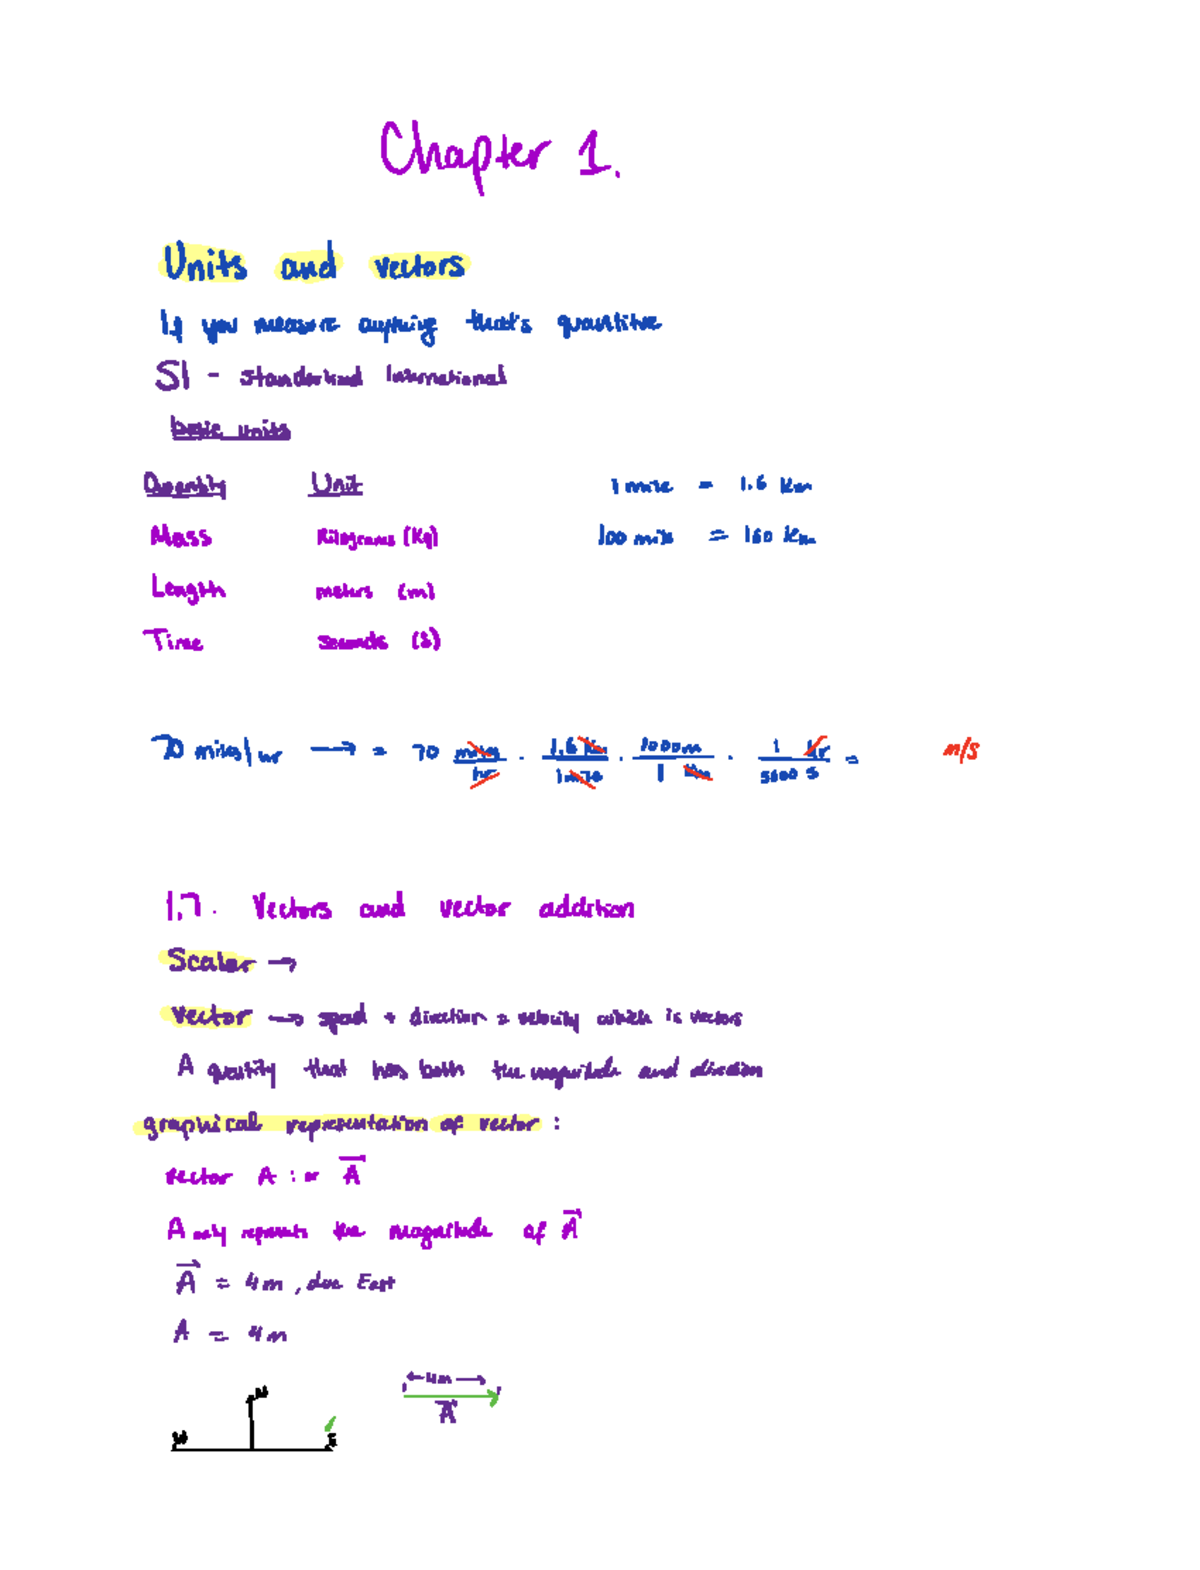 Chapter 1.
Units and vectors
If you measure anything that's quantitive
SI - standerized International
basic units
Quantity Unit
1 mile = 1.6 Km
Mass Kilograms (Kg)
100 mils = 160 Km
Length meters (m)
Time seconds (s)
70 miles/hr → = 70 miles/hr · 1.6 Km/1 mile · 1000m/1 Km · 1 hr/3600 s = m/s
1.7. Vectors and vector addition
Scaler →
vector → spead + direction = velocity which is vectors
A quantity that has both the magnitude and direction
graphical representation of vector :
vector A : or A⃗
A only represents the magnitude of A⃗
A⃗ = 4m, due East
A = 4m
←4m→
N
A⃗
W E